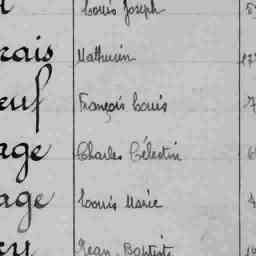 Louis Joseph
rais Mathurin
euf François Louis
age Charles Célestin
age Louis Marie
Jean Baptiste